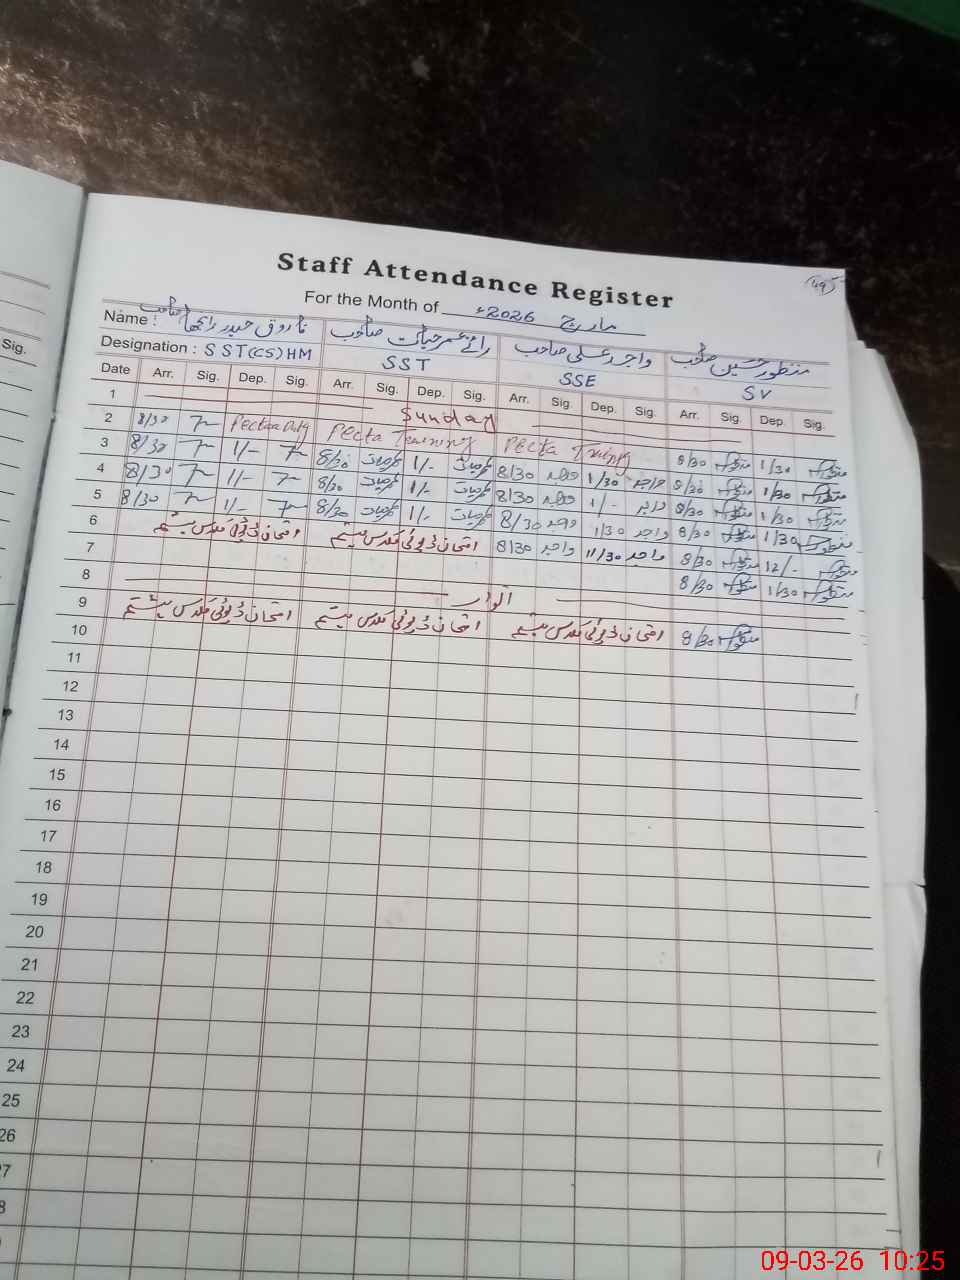 49
Staff Attendance Register
For the Month of مارچ 2026ء
Name : فاروق حیدر رانجھا صاحب رائے عمر حیات صاحب واجد علی صاحب منظور حسین صاحب
Designation : SST(CS)HM SST SSE SV
Sig.
Date Arr. Sig. Dep. Sig. Arr. Sig. Dep. Sig. Arr. Sig. Dep. Sig. Arr. Sig. Dep. Sig.
1 Sunday
2 8/30 Pecta Training Pecta Training 8/30 منظور 1/30 منظور
3 8/30 1/- 8/30 عمر حیات 1/- عمر حیات 8/30 واجد 1/30 واجد 8/30 منظور 1/30 منظور
4 8/30 1/- 8/30 عمر حیات 1/- عمر حیات 8/30 واجد 1/- واجد 8/30 منظور 1/30 منظور
5 8/30 1/- 8/30 عمر حیات 1/- عمر حیات 8/30 واجد 1/30 واجد 8/30 منظور 1/30 منظور
6 امتحان ڈیوٹی امتحان ڈیوٹی 8/30 واجد 11/30 واجد 8/30 منظور 12/- منظور
7 8/30 منظور 1/30 منظور
8 اتوار
9 امتحان ڈیوٹی امتحان ڈیوٹی امتحان ڈیوٹی 8/30 منظور
10
11
12
13
14
15
16
17
18
19
20
21
22
23
24
25
26
09-03-26 10:25